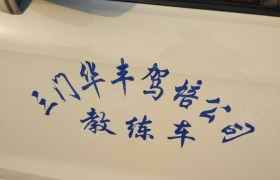 三门华丰驾培公司
教练车